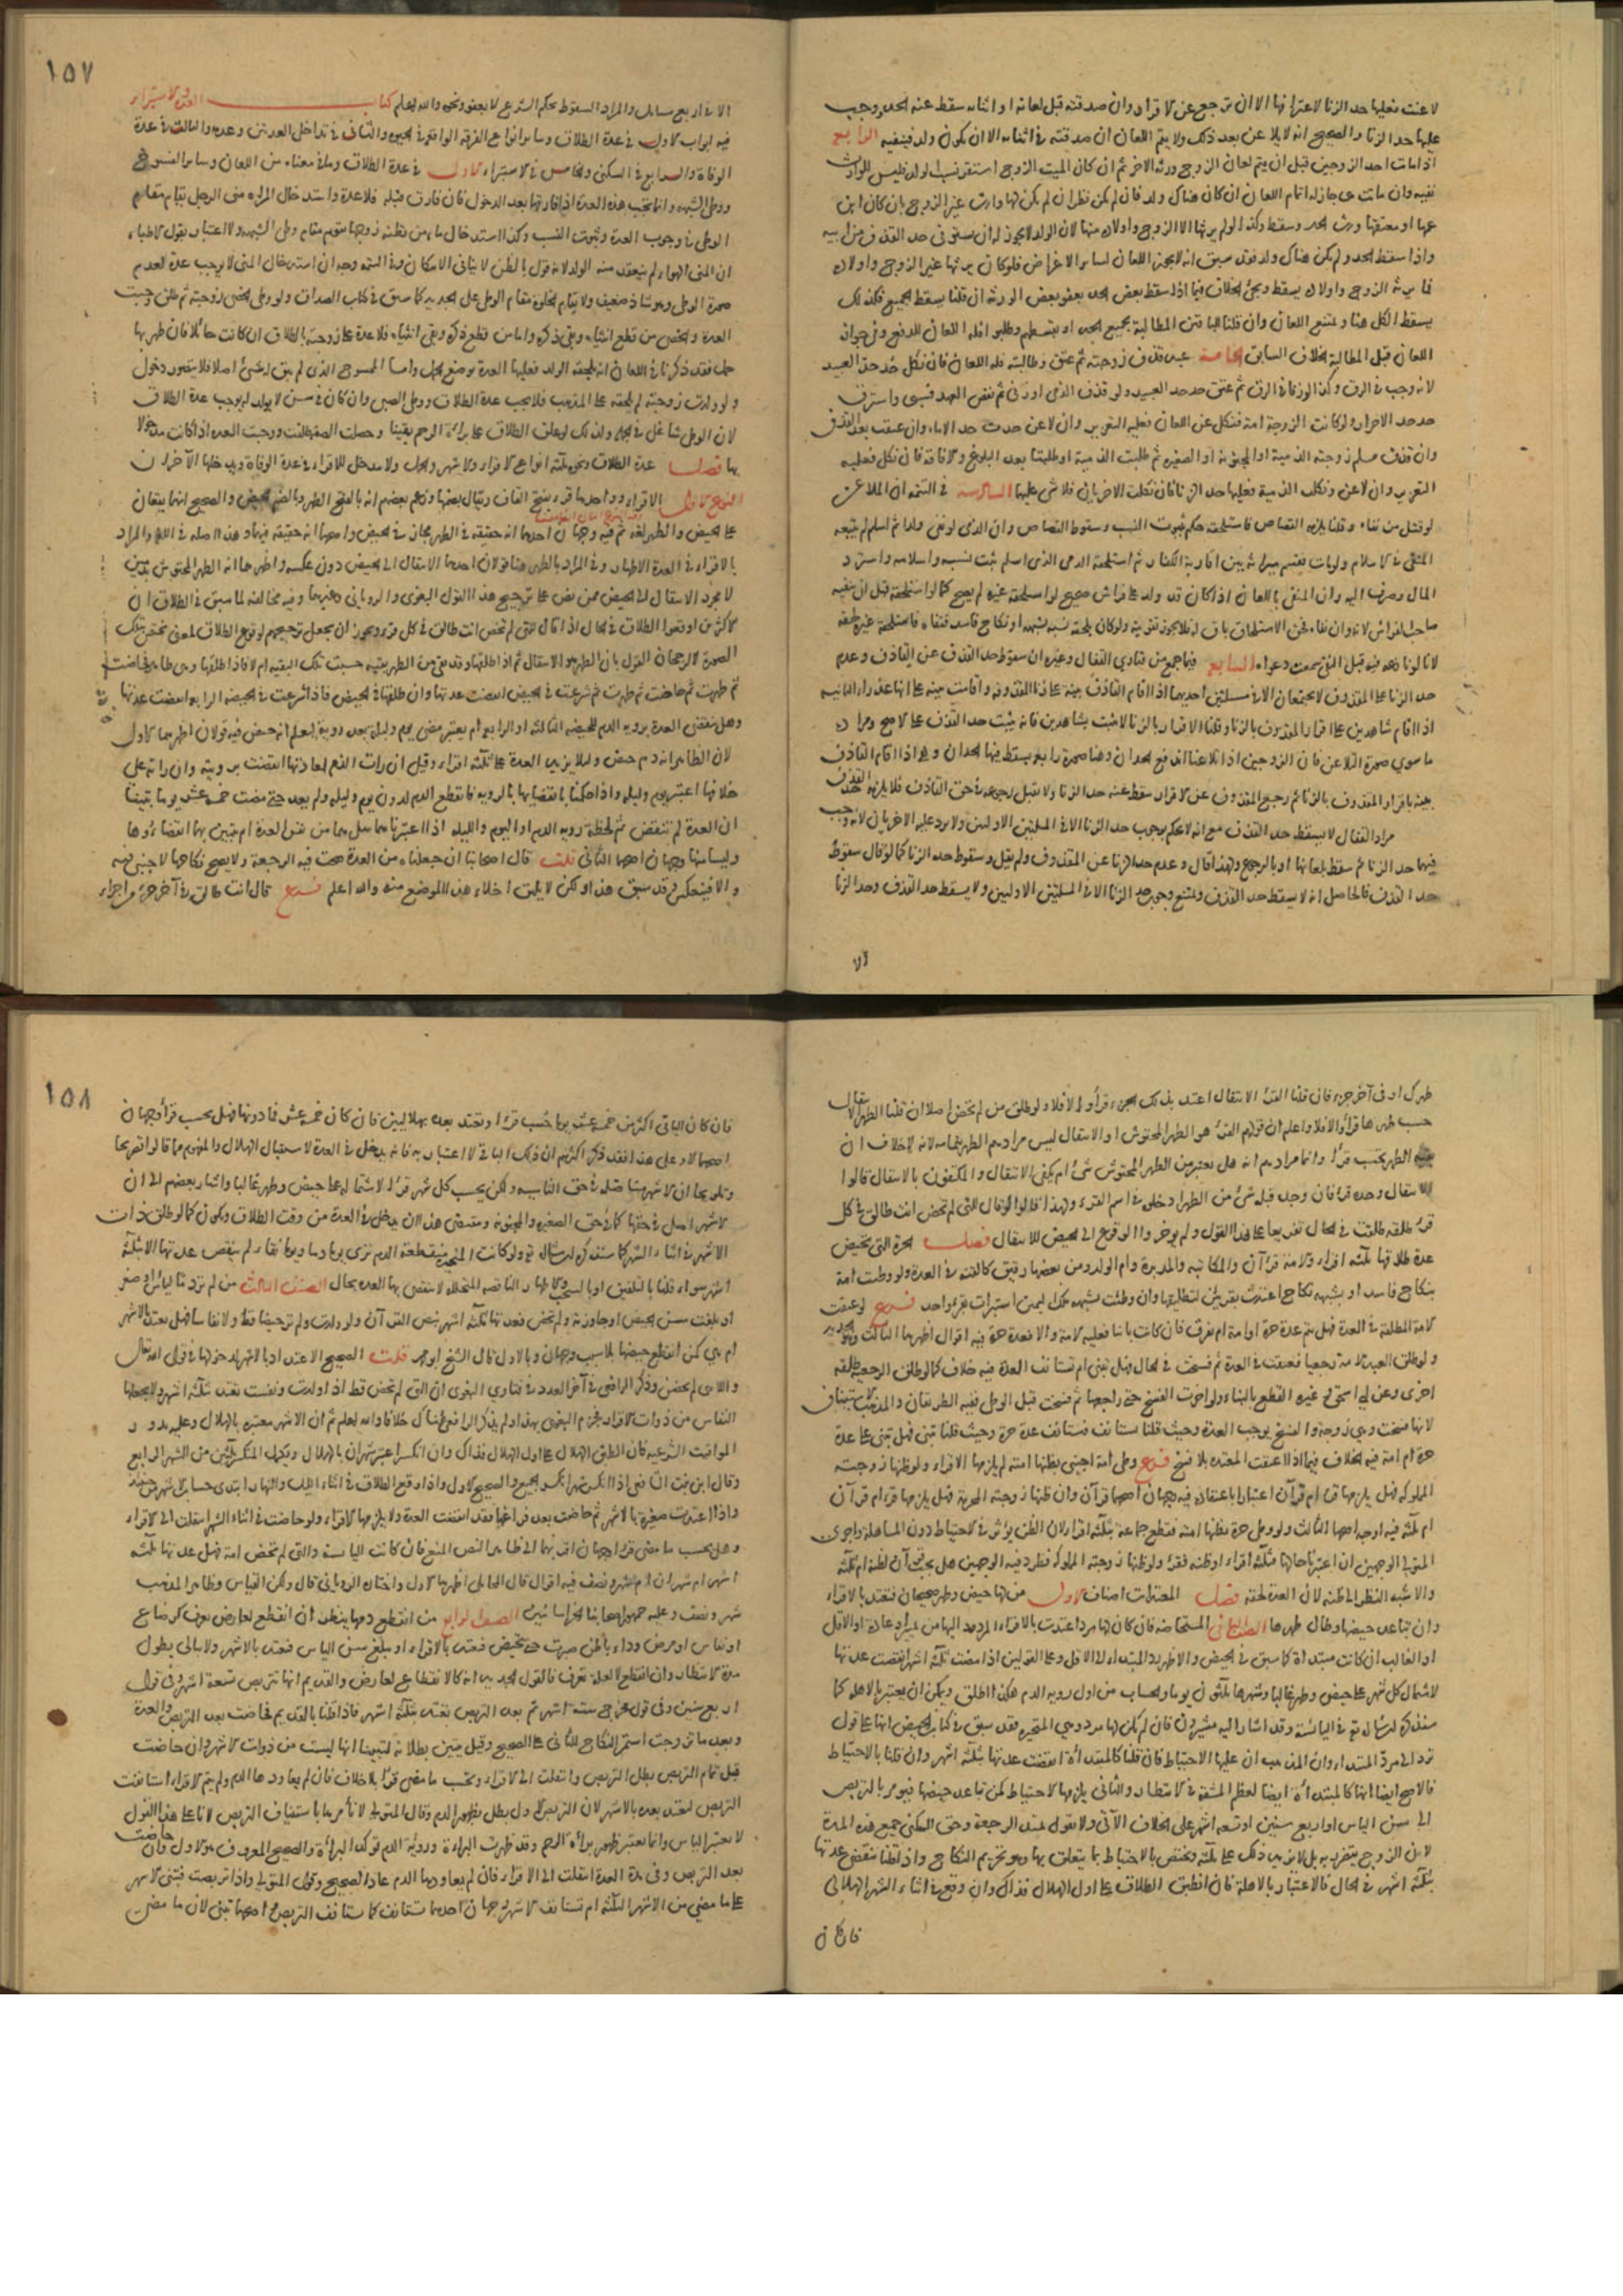 لاعنت فعليها حد الزنا لاعترافها الا ان ترجع عن الاقرار وان صدقته قبل لعانه او اثناءه سقط عنه الحد ووجب
عليها حد الزنا والصحيح انه لا يلاعن بعد ذلك ولا يتم اللعان ان صدقته في اثنائه الا ان يكون ولد فينفيه الرابع
اذا مات احد الزوجين قبل ان يتم لعان الزوج ورثه الاخر ثم ان كان الميت الزوج استقر نسب الولد فليس للوارث
نفيه وان ماتت هي جاز له اتمام اللعان ان كان هناك ولد فان لم يكن نظر ان لم يكن لها وارث غير الزوج بان كان ابن
عمها او معتقها ورث الحد وسقط وكذا لو لم يرثها الا الزوج واولاده منها لان الولد لا يجوز له ان يستوفى حد القذف من ابيه
واذا سقط الحد ولم يكن هناك ولد فقد سبق انه لا يجوز اللعان لسائر الاغراض فلو كان يرثها غير الزوج واولاده
فما يرثه الزوج واولاده يسقط ويجئ الخلاف فيما اذا سقط بعض الحد بعفو بعض الورثه ان قلنا يسقط الجميع فكذلك
يسقط الكل هنا ويمتنع اللعان وان قلنا للباقين المطالبة بجميع الحد او بقسطهم وطلبوا فله اللعان للدفع وفي جواز
اللعان قبل المطالبة الخلاف السابق الخامسة عبد قذف زوجته ثم عتق وطالبته فله اللعان فان نكل حُد حد العبيد
لانه وجب في الرق وكذا لو زنا في الرق ثم عتق حد حد العبيد ولو قذف الذمي او زنى ثم نقض العهد فسبى واسترق
حد حد الاحرار ولو كانت الزوجة امة فنكل عن اللعان فعليه التعزير وان لاعن حدت حد الاماء وان عتقت بعد القذف
وان قذف مسلم زوجته الذمية او المجنونة او الصغيرة ثم طلبت الذمية او طلبتا بعد البلوغ والافاقة فان نكل فعليه
التعزير وان لاعن ونكلت الذمية فعليها حد الزنا فان نكلت الاخريان فلا شئ عليهما السادسة في التتمه ان الملاعن
لو قتل من نفاه وقلنا يلزمه القصاص فاستلحقه حكم بثبوت النسب وسقوط القصاص وان الذمي لو نفى ولدا ثم اسلم لم يتبعه
المنفى في الاسلام ولو مات فقسم ميراثه بين اقاربه الكفار ثم استلحقه الذمى الذى اسلم ثبت نسبه واسلامه واسترد
المال وصرف اليه وان المنفى باللعان اذا كان قد ولد على فراش صحيح لو استلحقه غيره لم يصح كما لو استلحقه قبل ان ينفيه
صاحب الفراش لانه وان نفاه فحق الاستلحاق باق له فلا يجوز تفويته ولو كان يلحقه نسبه بشبهه او نكاح فاسد فنفاه فاستلحقه غيره لحقه
لانه لو نازعه فيه قبل النفي سمعت دعواه السابع فيما جمع من فتاوي القفال وغيره ان سقوط حد القذف عن القاذف وعدم
حد الزنا على المقذوف لا يجتمعان الا في مسئلتين احديهما اذا اقام القاذف بينة على زنا المقذوفه واقامت بينه على انها عذراء الثانيه
اذا اقام شاهدين على اقرار المقذوف بالزنا وقلنا الاقرار بالزنا لا يثبت بشاهدين فانه يثبت حد القذف على الاصح ومراده
ما سوى صورة التلاعن فان الزوجين اذا تلاعنا اندفع الحدان وهنا صورة رابعه يسقط فيها الحدان وهو اذا اقام القاذف
بينه باقرار المقذوف بالزنا ثم رجع المقذوف عن الاقرار سقط عنه حد الزنا ولا تقبل رجوعه في حق القاذف فلا يلزمه حد القذف
مراد القفال لا يسقط حد القذف مع انه لا يحكم بوجوب حد الزنا الا في المسئلتين الاوليين ولا يرد عليه الاخريان لانه وجب
فيهما حد الزنا ثم سقط بلعانها او بالرجوع ولهذا قال وعدم حد الزنا عن المقذوف ولم يقل وسقوط حد الزنا كما لو قال سقوط
حد القذف فالحاصل انه لا يسقط حد القذف ويمتنع وجوب حد الزنا الا في المسئلتين الاوليين ولا يسقط حد القذف وحد الزنا
الا
١٥٧
الا في اربع مسائل والمراد السقوط بحكم الشرع لا بعفو ونحوه والله اعلم كتاب العدة والاستبراء
فيه ابواب الاول في عدة الطلاق وسائر انواع الفرقه الواقعه في الحيوه والثاني في تداخل العدتين وعدمه والثالث في عدة
الوفاة والرابع في السكنى والخامس في الاستبراء الاول في عدة الطلاق وما في معناه من اللعان وسائر الفسوخ
ووطئ الشبهه وانما تجب هذه العدة اذا فارقها بعد الدخول فان فارق قبله فلا عدة واستدخال المرأه منى الرجل يقام مقام
الوطئ في وجوب العدة وثبوت النسب وكذا استدخال ماء من تظنه زوجها يقوم مقام وطئ الشبهه ولا اعتبار بقول الاطباء
ان المنى الهواء لم ينعقد منه الولد لانه قول بالظن لا ينافى الامكان وفي التتمه وجه ان استدخال المنى لا يوجب عدة لعدم
صورة الوطئ وهو شاذ ضعيف ولا يقام الخلوة مقام الوطئ على الجديد كما سبق في كتاب الصداق ولو وطئ الخصى زوجته ثم طلق وجبت
العدة والخصى من قطع انثياه وبقي ذكره واما من قطع ذكره وبقي انثياه فلا عدة على زوجته بالطلاق ان كانت حائلا فان ظهر بها
حمل فقد ذكرنا في اللعان انه يلحقه الولد فعليها العدة بوضع الحمل واما الممسوح الذى لم يبق له شئ اصلا فلا يتصور دخول
ولو ولدت زوجته لم يلحقه على المذهب فلا يجب عدة الطلاق ووطئ الصبى وان كان في سن لا يولد له يوجب عدة الطلاق
لان الوطئ شاغل في الجملة ولذلك لو علق الطلاق على براءة الرحم يقينا وحصلت الصفة طلقت ووجبت العده اذا كانت مدخولا
بها فصل عدة الطلاق ونحوه ثلثة انواع الاقراء والاشهر والحمل ولا مدخل للاقراء في عدة الوفاة ويدخلها الآخران
النوع الاول الاقراء وواحدها قرء بفتح القاف ويقال بضمها وزعم بعضهم انه بالفتح الطهر وبالضم الحيض والصحيح انهما يقعان
على الحيض والطهر لغة ثم فيه وجهان احدهما انه حقيقه في الطهر مجاز في الحيض واصحهما انه حقيقه فيهما وهذا اصله في اللغه والمراد
بالاقراء في العدة الاطهار وفي المراد بالطهر هنا قولان احدهما الانتقال الى الحيض دون عكسه واظهرهما انه الطهر المحتوش بدمين
لا مجرد الانتقال الى الحيض ممن نص على ترجيح هذا القول البغوى والرويانى وغيرهما وفيه مخالفه لما سبق في الطلاق ان
الاكثرين اوقعوا الطلاق في الحال اذا قال للتى لم تحض انت طالق في كل قرء ويجوز ان يجعل ترجيحهم لوقوع الطلاق لمعنى يختص بتلك
الصورة لا لرجحان القول بان الطهر هو الانتقال ثم اذا طلقها وقد بقي من الطهر بقيه حسبت تلك البقيه ام لا فاذا طلقها وهى طاهر فحاضت
ثم طهرت ثم حاضت ثم طهرت ثم شرعت في الحيض انقضت عدتها وان طلقها في الحيض فاذا شرعت في الحيضه الرابعه انقضت عدتها
وهل تنقضى العدة برويه الدم للحيضه الثالثه او الرابعه ام يعتبر مضى يوم وليله بعد رويته ليعلم انه حيض فيه قولان اظهرهما الاول
لان الظاهر انه دم حيض ولئلا يزيد العدة على ثلثه اقراء وقيل ان رات الدم لعادتها انقضت برويته وان راته على
خلافها اعتبر يوم وليله واذا حكمنا بانقضايها بالرويه فانقطع الدم لدون يوم وليله ولم يعد حتى مضت خمسه عشر يوما تبينا
ان العدة لم تنقض ثم لحظة رويه الدم او اليوم والليله اذا اعتبرناهما هل هما من نفس العدة ام يتبين بهما انقضاؤها
وليسا منها وجهان اصحهما الثانى قلت قال اصحابنا ان جعلناه من العدة صحت فيه الرجعة ولا يصح نكاحها لاجنبي فيه
والا فينعكس وقد سبق هذا ولكن لا يليق اخلاء هذا الموضع منه والله اعلم فرع قال انت طالق في آخر جزء من اجزاء
طهرك او في آخر جزء فان قلنا القرء الانتقال اعتد بذلك الجزء قرأ والا فلا ولو طلق من لم تحض اصلا ان قلنا الطهر الانتقال
حسب طهرها قرأ والا فلا واعلم ان قولهم القرء هو الطهر المحتوش او الانتقال ليس مرادهم الطهر بتمامه لانه لا خلاف ان
بقيه الطهر تحتسب قرأ وانما مرادهم انه هل يعتبر من الطهر المحتوش شئ ام يكفى الانتقال والمكتفون بالانتقال قالوا
الانتقال وحده قرء فان وجد قبله شئ من الطهر ادخلوه في اسم القرء ولهذا قالوا لو قال للتى لم تحض انت طالق في كل
قرء طلقه طلقت في الحال تفريعا على هذا القول ولم يؤخروا الوقوع الى الحيض للانتقال فصل الحرة التى تحيض
عدة طلاقها ثلثه اقراء والامة قرءان والمكاتبه والمدبرة وام الولد ومن بعضها رقيق كالقنه في العدة ولو وطئت امة
بنكاح فاسد او بشبهه نكاح اعتدت بقرئين كتطليقها وان وطئت بشبهه ملك اليمين استبرات بقرء واحد فرع لو عتقت
الامة المطلقة في العدة فهل يتم عدة حرة او امة ام يفرق فان كانت باينا فعليه الامة والا فعدة حرة فيه اقوال اظهرها الثالث وهو الجديد
ولو طلق العبد الامة رجعيا فعتقت في العدة ثم فسخت في الحال فهل تبنى ام تستانف العدة فيه خلاف كما لو طلق الرجعية طلقه
اخرى وعن ابي اسحق وغيره القطع بالبناء ولو اخرت الفسخ حتى راجعها ثم فسخت قبل الوطئ ففيه الطريقان والمذهب الاستيناف
لانها فسخت وهى زوجه والفسخ يوجب العدة وحيث قلنا تستانف فتستانف عدة حرة وحيث قلنا تبنى فهل تبنى على عدة
حرة ام امة فيه الخلاف فيما اذا عتقت المعتده بلا فسخ فرع وطئ امة اجنبى يظنها امته لم يلزمها الا قرء ولو ظنها زوجته
المملوكه فهل يلزمها قرء ام قرءان اعتبارا باعتقاده فيه وجهان اصحهما قرءان وان ظنها زوجته الحرة فهل يلزمها قرء ام قرءان
ام ثلثه فيه اوجه اصحها الثالث ولو وطئ حرة يظنها امته فقطع جماعة بثلثه اقراء لان الظن يؤثر في الاحتياط دون المساهلة واجرى
المتولى الوجهين ان اعتبرنا حالها فثلثه اقراء او ظنه فقرء ولو ظنها زوجته المملوكه فطرد فيه الوجهين هل يجب قرءان لظنه ام ثلثه
والاشبه النظر الى ظنه لان العدة لحقه فصل المعتدات اصناف الاول من لها حيض وطهر صحيحان فتعتد بالاقراء
وان تباعد حيضها وطال طهرها الصنف الثاني المستحاضه فان كان لها مرد اعتدت بالاقراء المردود اليها من تمييز او عادة او الاقل
او الغالب ان كانت مبتدأة كما سبق في الحيض والاظهر رد المبتدأه الى الاقل وعلى القولين اذا مضت ثلثة اشهر انقضت عدتها
لاشتمال كل شهر على حيض وطهر غالبا وشهرها ثلثون يوما والحساب من اول رويه الدم هكذا اطلق ويمكن ان يعتبر بالاهله كما
سنذكره ان شا الله تع في اليائسة وقد اشار اليه مشيرون فان لم يكن لها مرد وهى المتحيره فقد سبق في كتاب الحيض انها على قول
ترد الى مردّ المبتدأه وان المذهب ان عليها الاحتياط فان قلنا كالمبتدأة انقضت عدتها بثلثة اشهر وان قلنا بالاحتياط
فالاصح ايضا انها كالمبتدأة ايضا لعظم المشقه في الانتظار والثانى يلزمها الاحتياط كمن تباعد حيضها فيومر بالتربص
الى سن الياس او اربع سنين او تسعه اشهر على الخلاف الآتى ولا نقول بمتد الرجعة وحق السكنى جميع هذه المدة
لان الزوج يتضرر به بل لا يزيد ذلك على ثلثه ويختص بالاحتياط بما يتعلق بها وهو تحريم النكاح واذا قلنا تنقضى عدتها
بثلثه اشهر في الحال فالاعتبار بالاهلة فان انطبق الطلاق على اول الهلال فذاك وان وقع في اثناء الشهر الهلالى
فان كان
١٥٨
فان كان الباقى اكثر من خمسه عشر يوما حُسب قرءا وتعتد بعده بهلالين فان كان خمسه عشر فما دونها فهل يحسب قرأ وجهان
اصحهما لا وعلى هذا فقد ذكر اكثرهم ان ذلك الباقى لا اعتبار به فانه يدخل في العدة لاستقبال الهلال والمفهوم مما قالوه تصريحا
وتلويحا ان الاشهر متاصله في حق الناسيه ولكن يحسب كل شهر قرءا لاشتماله على حيض وطهر غالبا واشار بعضهم الى ان
الاشهر اصل في حقها كما في حق الصغيره والمجنونه ومقتضى هذا ان يدخل في العدة من وقت الطلاق ويكون كما لو طلق ذات
الاشهر في اثناء الشهر كما سنذكره ان شا الله تع ولو كانت المتحيرة منقطعة الدم ترى يوما دما ويوما نقاء لم تنقض عدتها الا بثلثة
اشهر سواء قلنا بالتلفيق او بالسحب والاطهار الناقصه المتخللة لا تنقضى بها العدة بحال الصنف الثالث من لم تر دما لياس او صغر
او بلغت سن الحيض او جاوزته ولم تحض فعدتها ثلثه اشهر بنص القرآن ولو ولدت ولم تر حيضا قط ولا نفاسا فهل تعتد بالاشهر
ام هى كمن انقطع حيضها بلا سبب وجهان وبالاول قال الشيخ ابو حامد قلت الصحيح الاعتداد بالاشهر لدخولها في قول الله تعالى
واللائى لم يحضن وذكر الرافعى في آخر العدد في فتاوي البغوى ان التى لم تحض قط اذا ولدت ونفست تعتد بثلثه اشهر ولا يجعلها
النفاس من ذوات الاقراء فجزم البغوي بهذا ولم يذكر الرافعى هناك خلافا والله اعلم ثم ان الاشهر معتبره بالهلال وعليه يدور
المواقيت الشرعيه فان انطبق الطلاق على اول الهلال فذاك وان انكسر اعتبر شهران بالهلال ويكمل المنكسر ثلثين من الشهر الرابع
وقال ابن بنت الشافعي اذا انكسر شهر انكسر الجميع والصحيح الاول واذا وقع الطلاق في اثناء الليل والنهار ابتدى حساب الشهر حينئذ
واذا اعتدت صغيرة بالاشهر ثم حاضت بعد فراغها فقد انقضت العدة ولا يلزمها الاقراء ولو حاضت في اثناء الشهر انتقلت الى الاقراء
وهل يحسب ما مضى قرءا وجهان اقربهما الى ظاهر النص المنع فان كانت اليائسة والتى لم تحض امة فهل عدتها ثلثه
اشهر ام شهران ام شهر ونصف فيه اقوال قال المحاملى اظهرها الاول واختاره الرويانى قال ولكن القياس وظاهر المذهب
شهر ونصف وعليه جمهور اصحابنا الخراسانيين الصنف الرابع من انقطع دمها ينظر ان انقطع لعارض يعرف كرضاع
او نفاس او مرض وداء باطن صبرت حتى تحيض فتعتد بالاقراء او تبلغ سن الياس فتعتد بالاشهر ولا يبالى بطول
مدة الانتظار وان انقطع لا لعلة تعرف فالقول الجديد انه كالانقطاع لعارض والقديم انها تتربص تسعة اشهر وفي قول
اربع سنين وفي قول مخرج ستة اشهر ثم بعد التربص تعتد بثلثة اشهر فاذا قلنا بالقديم فحاضت بعد التربص والعدة
وبعد ما تزوجت استمر النكاح للثانى على الصحيح وقيل يتبين بطلانه لتبيننا انها ليست من ذوات الاشهر وان حاضت
قبل تمام التربص بطل التربص وانتقلت الى الاقراء ويحسب ما مضى قرءا بلا خلاف فان لم يعاودها الدم ولم يتم الاقراء استانفت
التربص لتعتد بعده بالاشهر لان التربص الاول بطل بظهور الدم وقال المتولى لا نأمرها باستيناف التربص لانا على هذا القول
لا نعتبر الياس وانما نعتبر ظهور براءة الرحم وقد ظهرت البراءة ورؤية الدم توكد البراءة والصحيح المعروف هو الاول وان حاضت
بعد التربص وفي مدة العدة انتقلت الى الاقراء فان لم يعاودها الدم عاد الصحيح وقول المتولى واذا تربصت فتبنى الاشهر
على ما مضى من الاشهر الثلثة ام تستانف الاشهر وجهان احدهما تستانف كما تستانف التربص اصحهما تبنى لان ما مضى